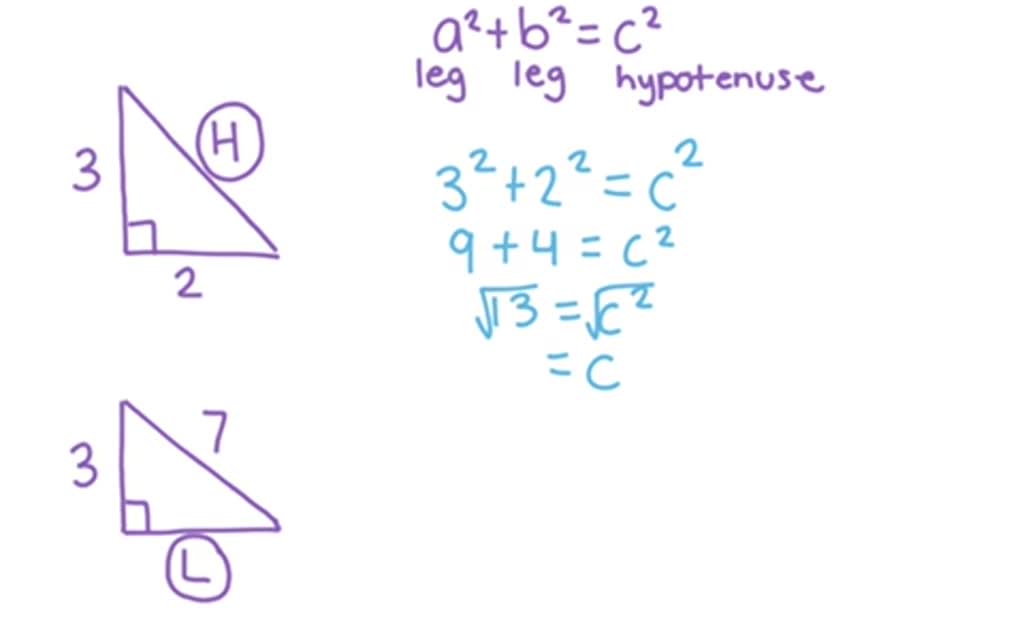 a² + b² = c²
leg leg hypotenuse
3
H
2
3² + 2² = c²
9 + 4 = c²
√13 = √c²
= c
3
7
L